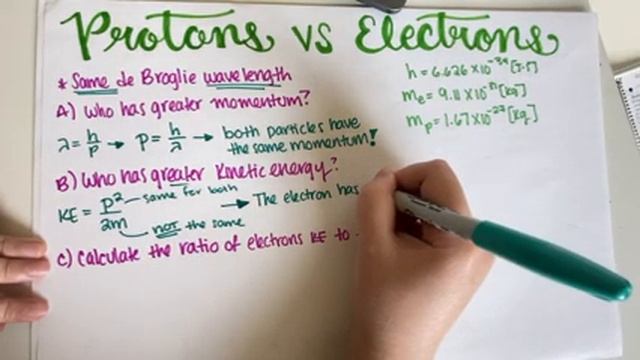 Protons vs Electrons
* Same de Broglie wavelength
h = 6.626 x 10⁻³⁴ [J·s]
mₑ = 9.11 x 10⁻³¹ [kg]
mₚ = 1.67 x 10⁻²⁷ [kg]
A) Who has greater momentum?
λ = h/p → p = h/λ → both particles have
the same momentum!
B) Who has greater kinetic energy?
KE = p²/2m
same for both
not the same
→ The electron has
C) Calculate the ratio of electrons KE to